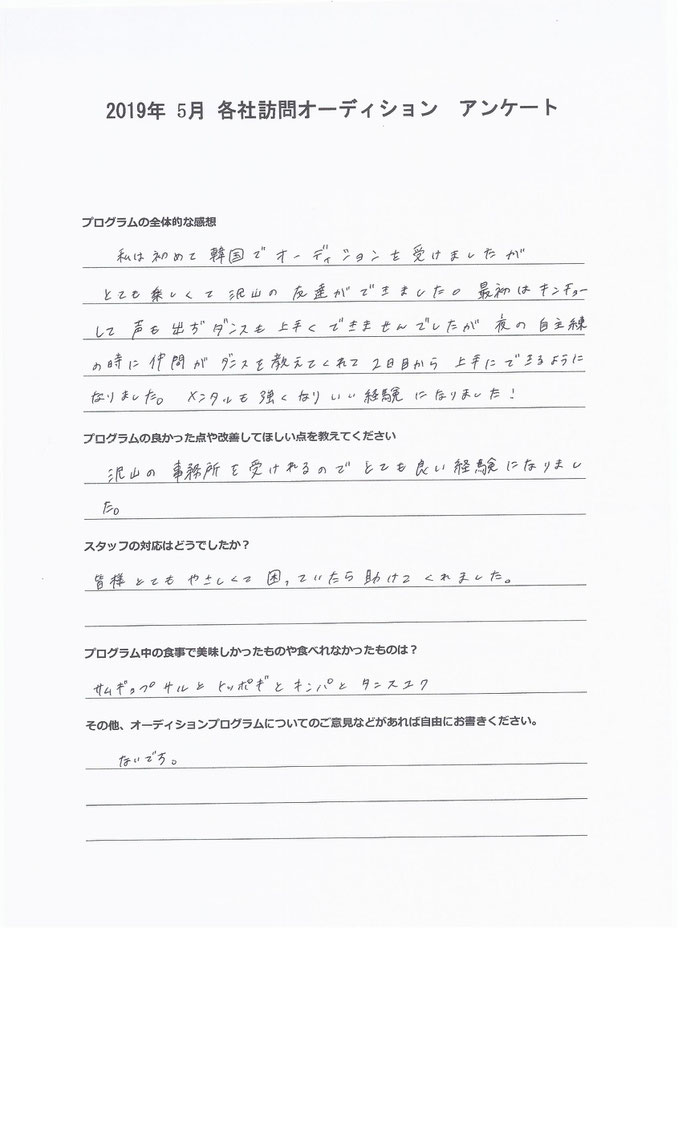 2019年 5月 各社訪問オーディション　アンケート
プログラムの全体的な感想
私は初めて韓国でオーディションを受けましたが
とても楽しくて沢山の友達ができました。最初はキンチョー
して声も出ずダンスも上手くできませんでしたが夜の自主練
の時に仲間がダンスを教えてくれて2日目から上手にできるように
なりました。メンタルも強くなりいい経験になりました!
プログラムの良かった点や改善してほしい点を教えてください
沢山の事務所を受けれるのでとても良い経験になりまし
た。
スタッフの対応はどうでしたか？
皆様とてもやさしくて困っていたら助けてくれました。
プログラム中の食事で美味しかったものや食べれなかったものは？
サムギョプサルとトッポギとキンパとタンスユク
その他、オーディションプログラムについてのご意見などがあれば自由にお書きください。
ないです。